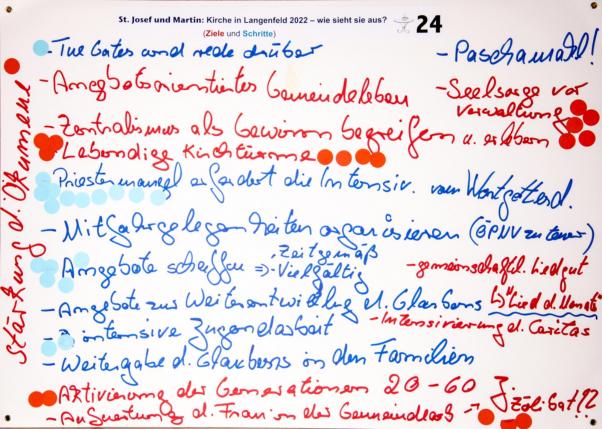 St. Josef und Martin: Kirche in Langenfeld 2022 – wie sieht sie aus?
(Ziele und Schritte)
24
- Tue Gutes und rede drüber
- Paschamahl!
- Angebotsorientiertes Gemeindeleben
- Seelsorge vor Verwaltung
- Zentralismus als Gewinn begreifen u. erleben
- Lebendige Kirchtürme
Priestermangel erfordert die Intensiv. von Wortgottesd.
- Mitfahrgelegenheiten organisieren (ÖPNV zu teuer)
- Angebote schaffen => - Zeitgemäß
- Vielfältig
- gemeinschaftl. Liedgut
↳ "Lied d. Monats"
- Angebote zur Weiterentwicklung d. Glaubens
- Intensivierung d. Caritas
- intensive Jugendarbeit
- Weitergabe d. Glaubens in den Familien
- Aktivierung der Generationen 20 - 60
- d. Frau in der Gemeinde
Zölibat!?
Stärkung d. Ökumene